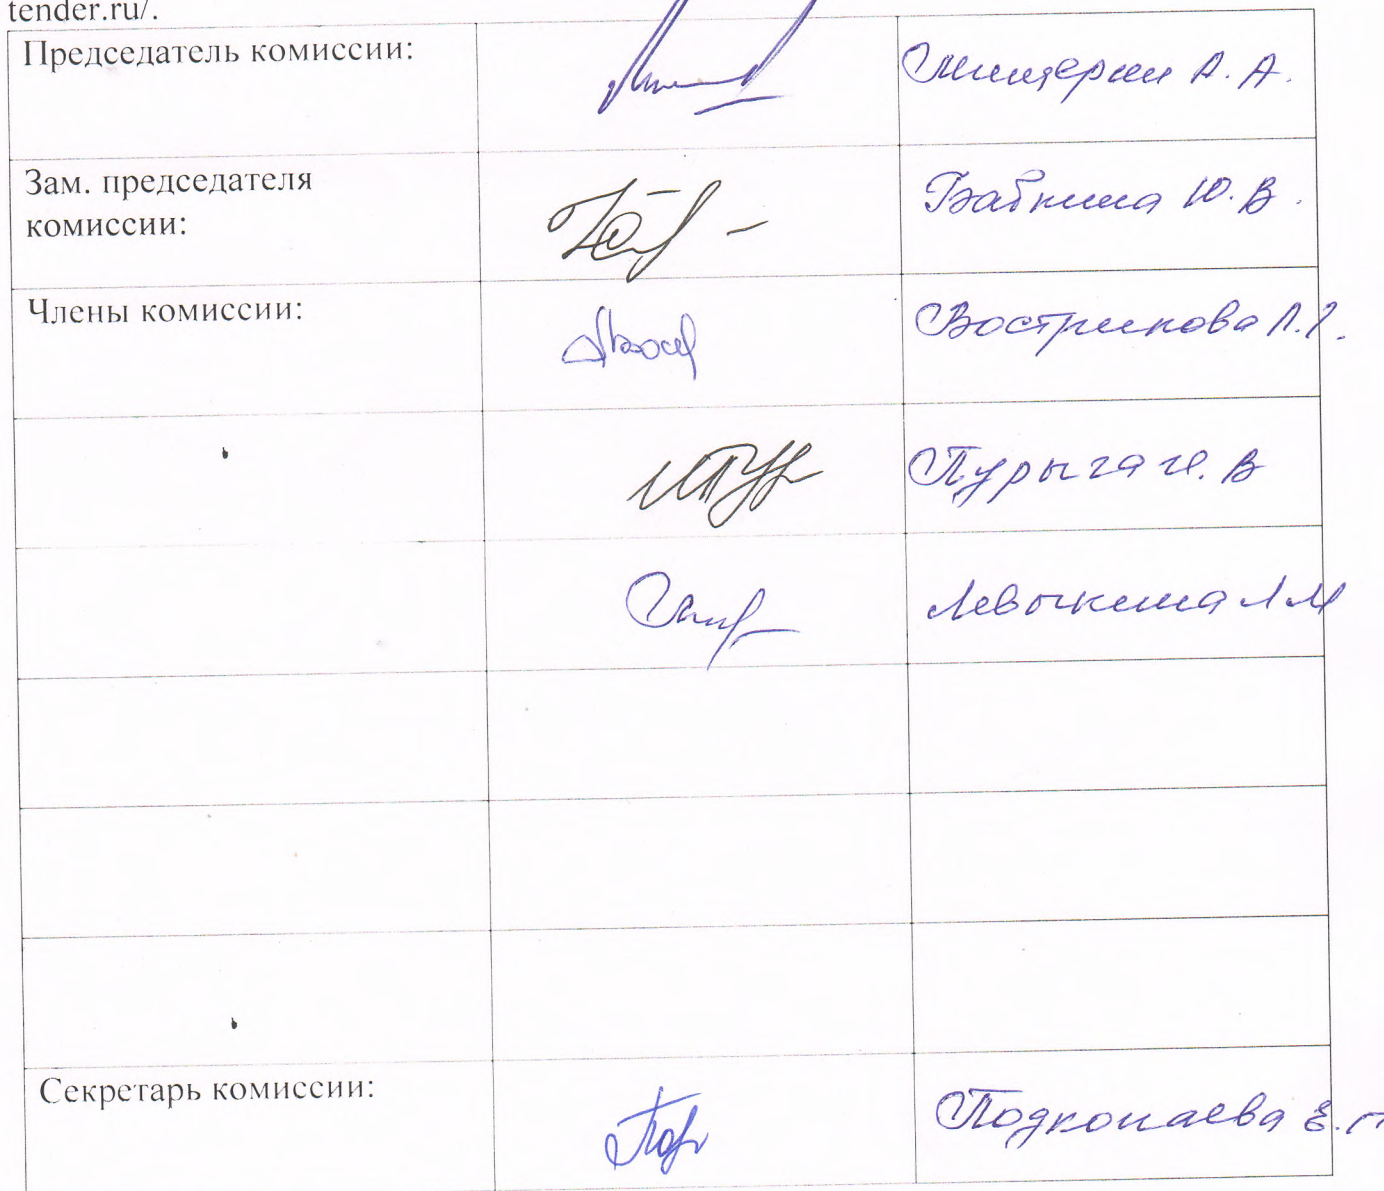 tender.ru/.
Председатель комиссии:
А. А.
Зам. председателя Бабкина Ю. В.
комиссии:
Члены комиссии: Вострикова Л. Г.
Пурыга Н. В
Левыкина Л М
Секретарь комиссии: Подкопаева Е. П